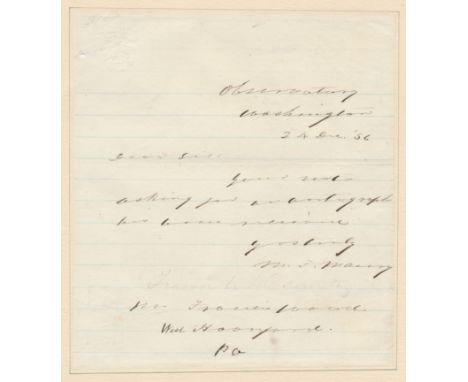 Observatory
Washington
24 Dec. '56
Dear Sir
Your note
asking for an autograph
has been received
yrs truly
M. F. Maury
Mr Francis Wood.
West Haverford.
Pa